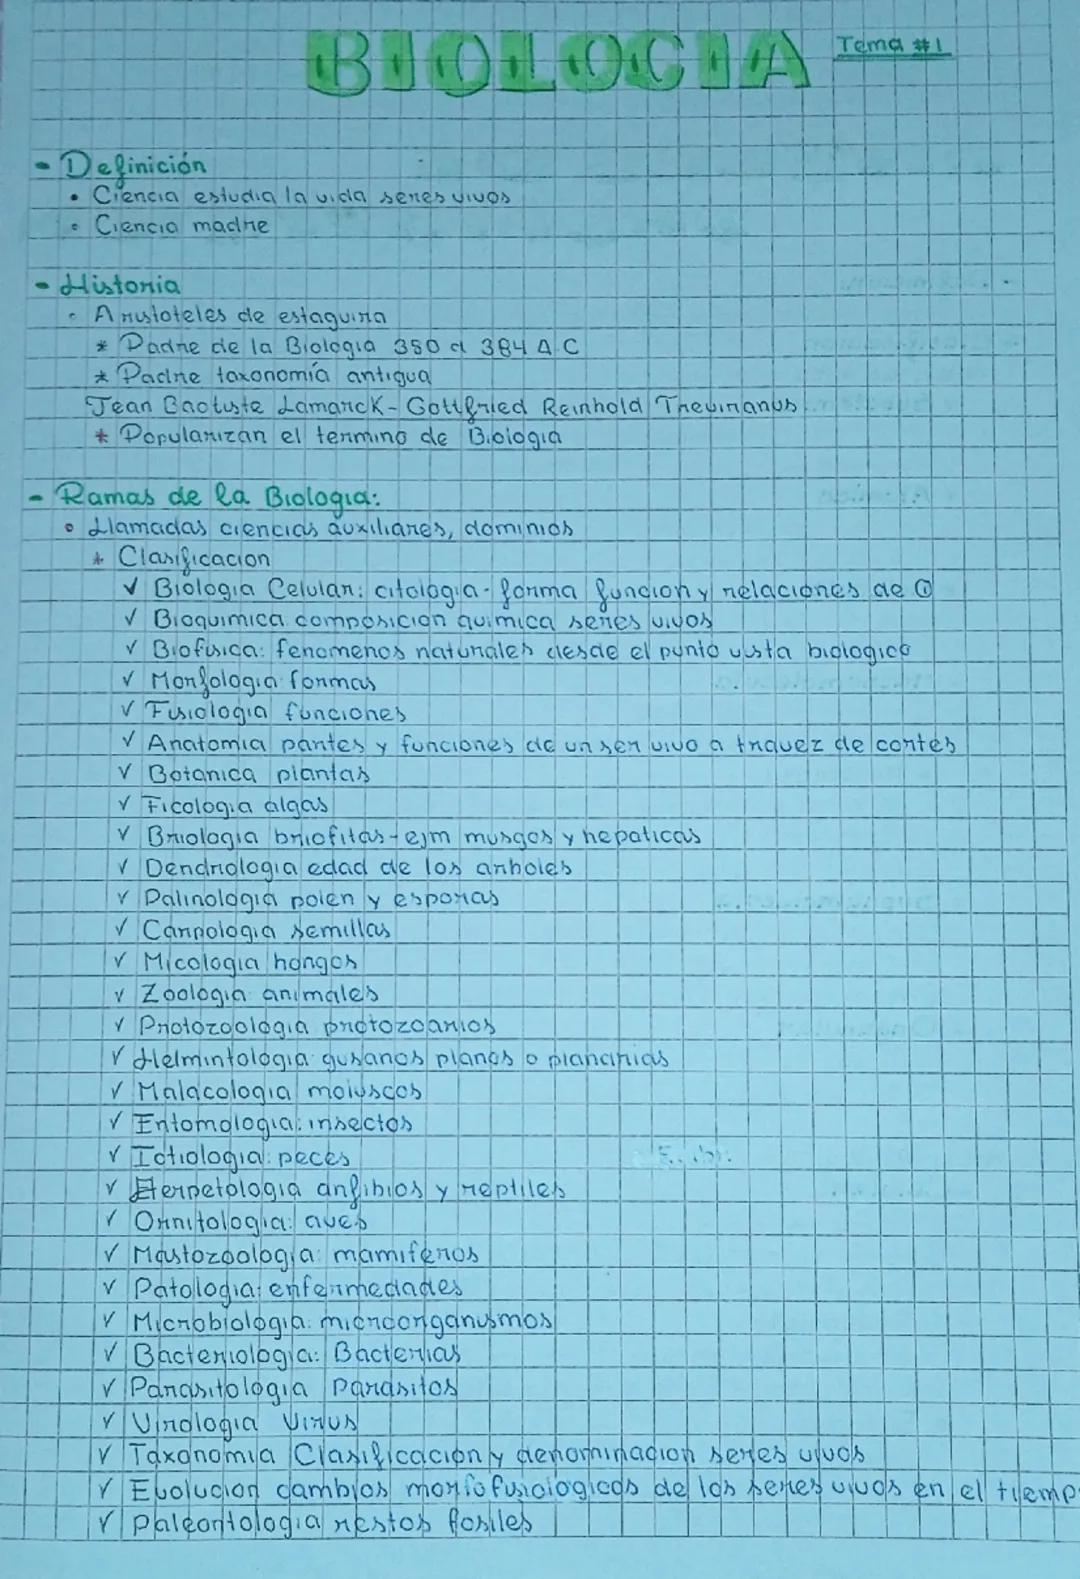 BIOLOGIA
Tema #1
- Definición
• Ciencia estudia la vida seres vivos
• Ciencia madre
- Historia
• Aristoteles de estaguira
* Padre de la Biologia 350 a 384 A.C
* Padre taxonomía antigua
Jean Baotiste Lamarck - Gottfried Reinhold Treviranus
* Popularizan el termino de Biologia
- Ramas de la Biologia:
• Llamadas ciencias auxiliares, dominios
* Clasificacion
✓ Biologia Celular: citologia - forma funcion y relaciones de
✓ Bioquimica composicion quimica seres vivos
✓ Biofisica: fenomenos naturales desde el punto vista biologico
✓ Morfologia formas
✓ Fisiologia funciones
✓ Anatomia partes y funciones de un ser vivo a travez de cortes
✓ Botanica plantas
✓ Ficologia algas
✓ Briologia briofitas - ejm musgos y hepaticas
✓ Dendriologia edad de los arboles
✓ Palinologia polen y esporas
✓ Carpologia semillas
✓ Micologia hongos
✓ Zoologia animales
✓ Protozoologia protozoarios
✓ Helmintologia gusanos planos o planarias
✓ Malacologia moluscos
✓ Entomologia: insectos
✓ Ictiologia: peces
✓ Herpetologia anfibios y reptiles
✓ Ornitologia: aves
✓ Mastozoologia: mamiferos
✓ Patologia: enfermedades
✓ Microbiologia: microorganismos
✓ Bacteriologia: Bacterias
✓ Parasitologia Parasitos
✓ Virologia Virus
✓ Taxonomia Clasificacion y denominacion seres vivos
✓ Evolucion cambios morfofisiologicos de los seres vivos en el tiemp
✓ Paleontologia restos fosiles